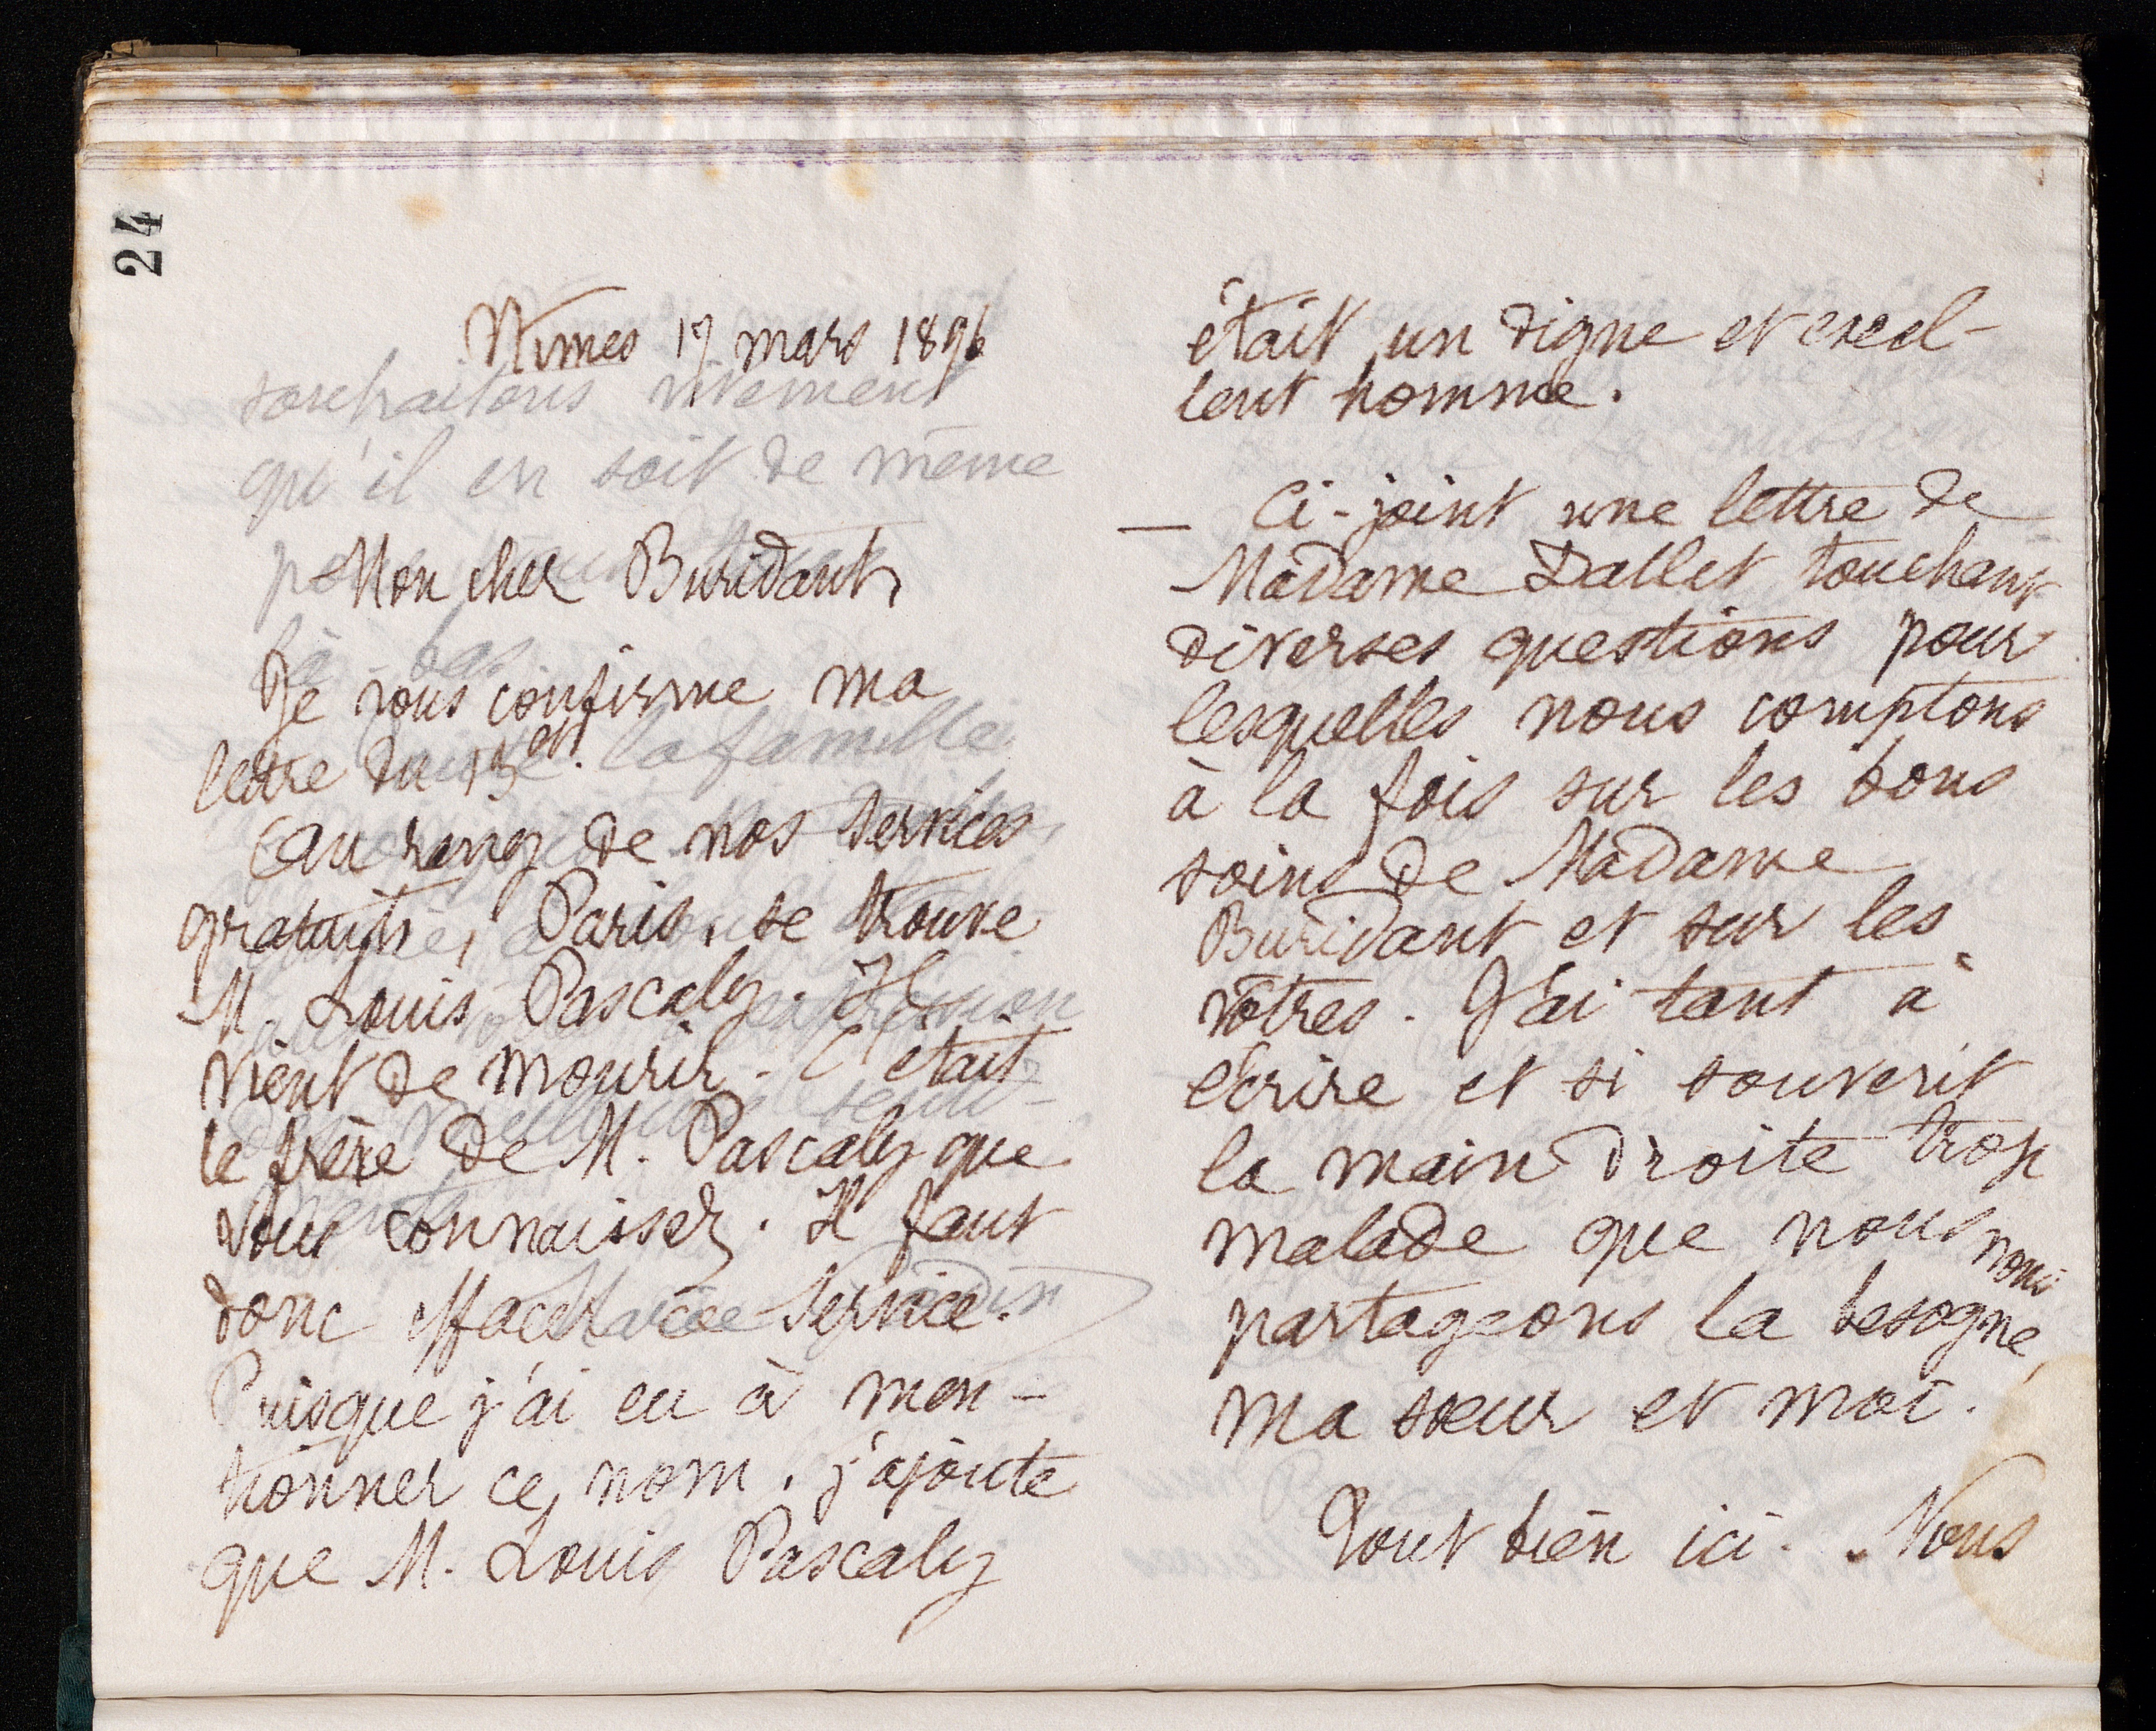 24
Nîmes 17 mars 1896
Mon cher Buridant,
Je vous confirme ma
lettre du 13 ct.
Au rang de nos services
gratuits, Paris, se trouve
M. Louis Pascaly. Il
vient de mourir. C'était
le frère de M. Pascaly que
vous connaissez. Il faut
donc effacer ce service.
Puisque j'ai eu à men-
tionner ce nom, j'ajoute
que M. Louis Pascaly
était un digne et excel-
lent homme.
— Ci-joint une lettre de
Madame Dallet touchant
diverses questions pour
lesquelles nous comptons
à la fois sur les bons
soins de Madame
Buridant et sur les
vôtres. J'ai tant à
écrire et si souvent
la main droite trop
malade que nous nous
partageons la besogne,
ma sœur et moi.
Tout bien ici. Nous
souhaitons vivement
qu'il en soit de même
là-bas
la famille